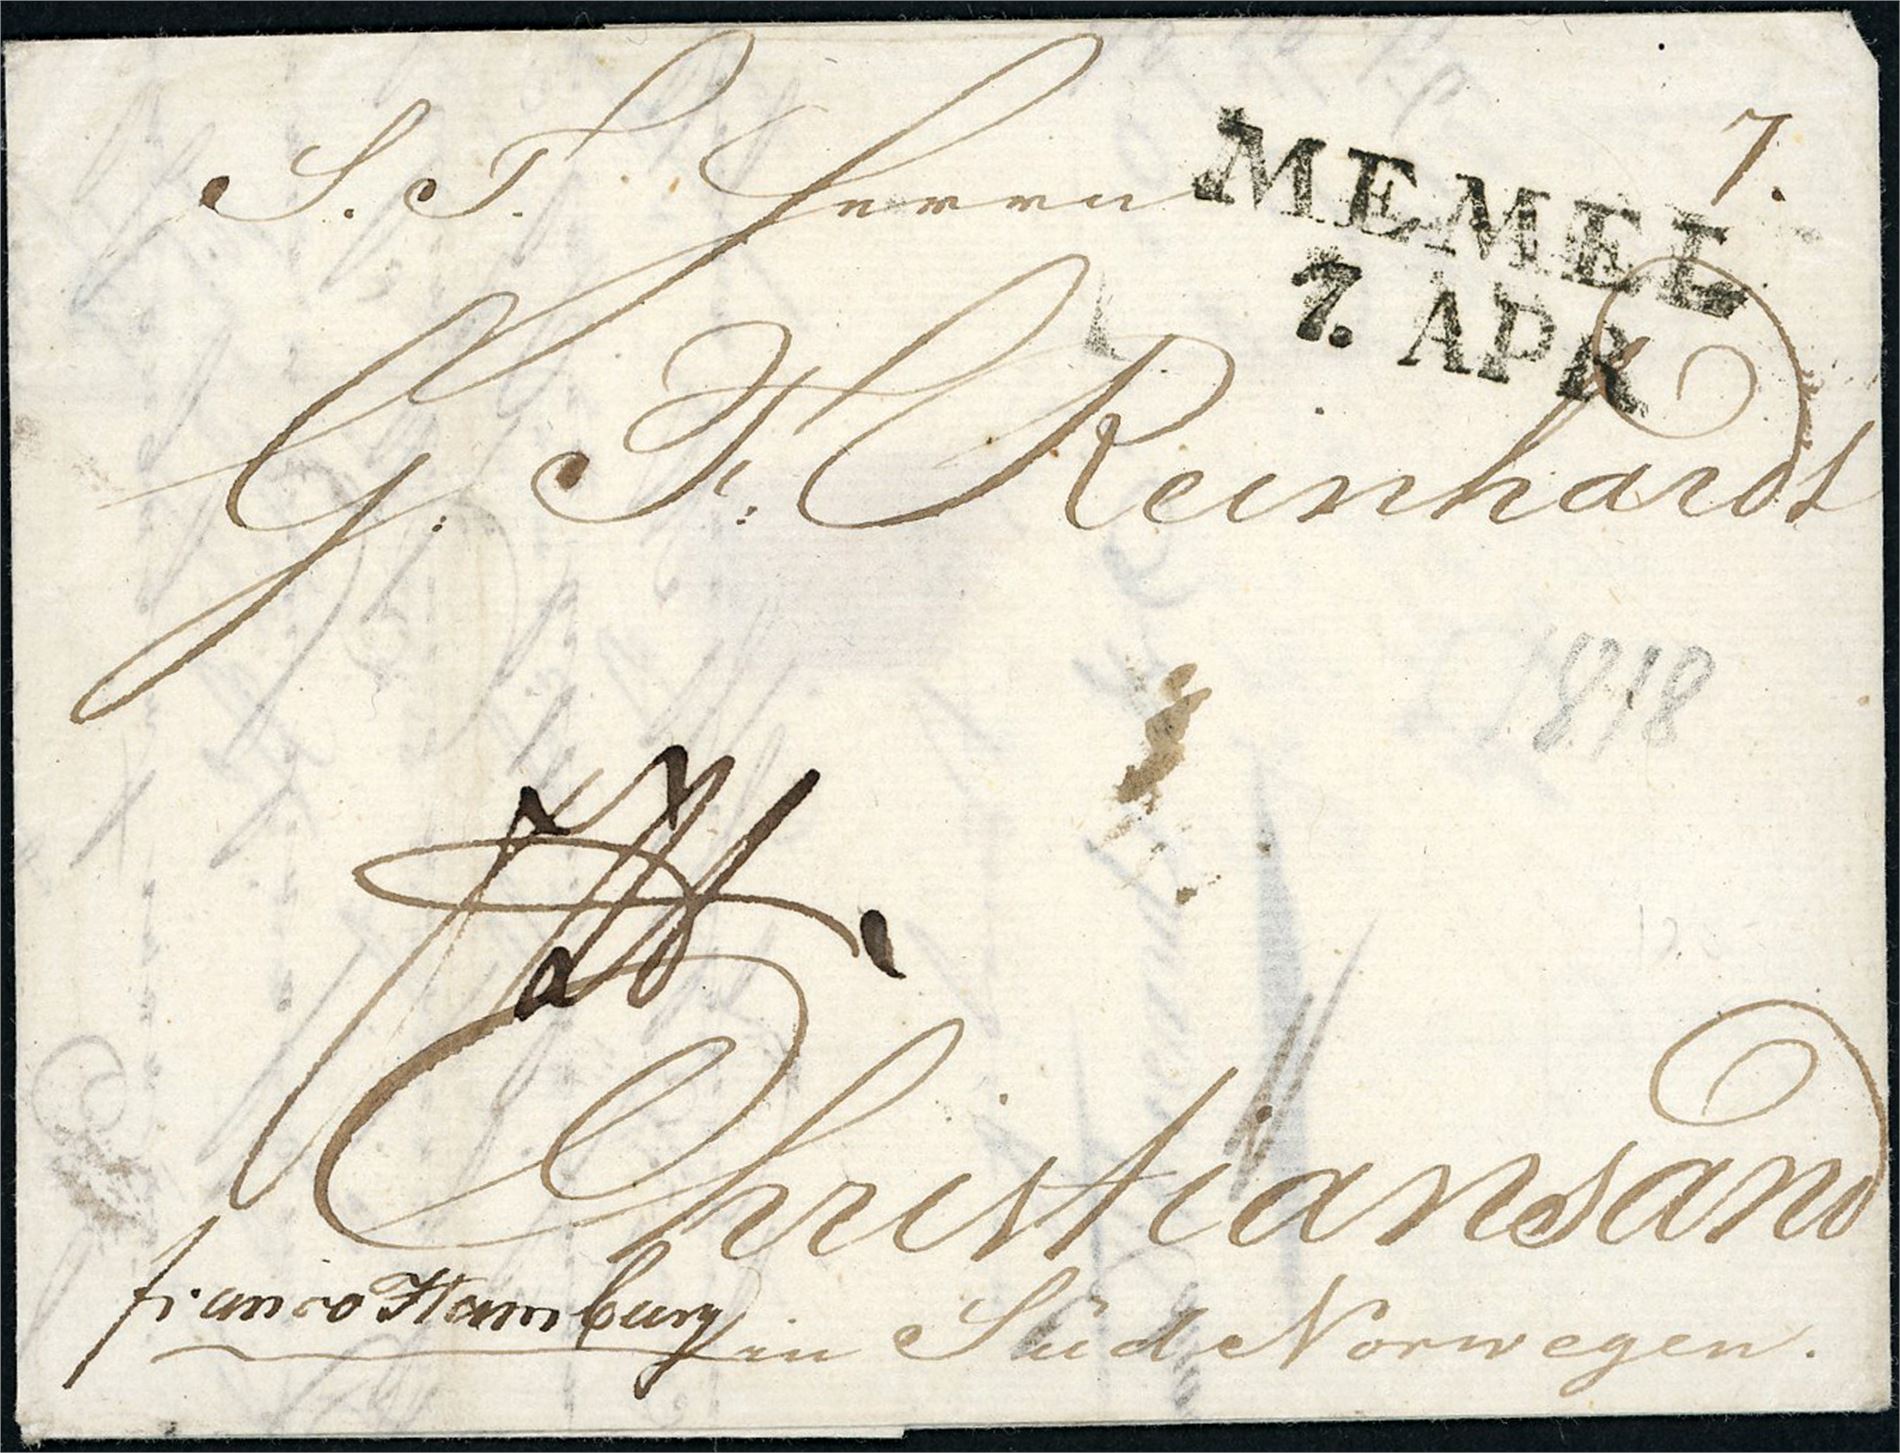 S. T. Herrn
MEMEL
7. APR
7.
G. F. Reinhardt
1818
Christiansand
franco Hamburg
in Süd Norwegen.